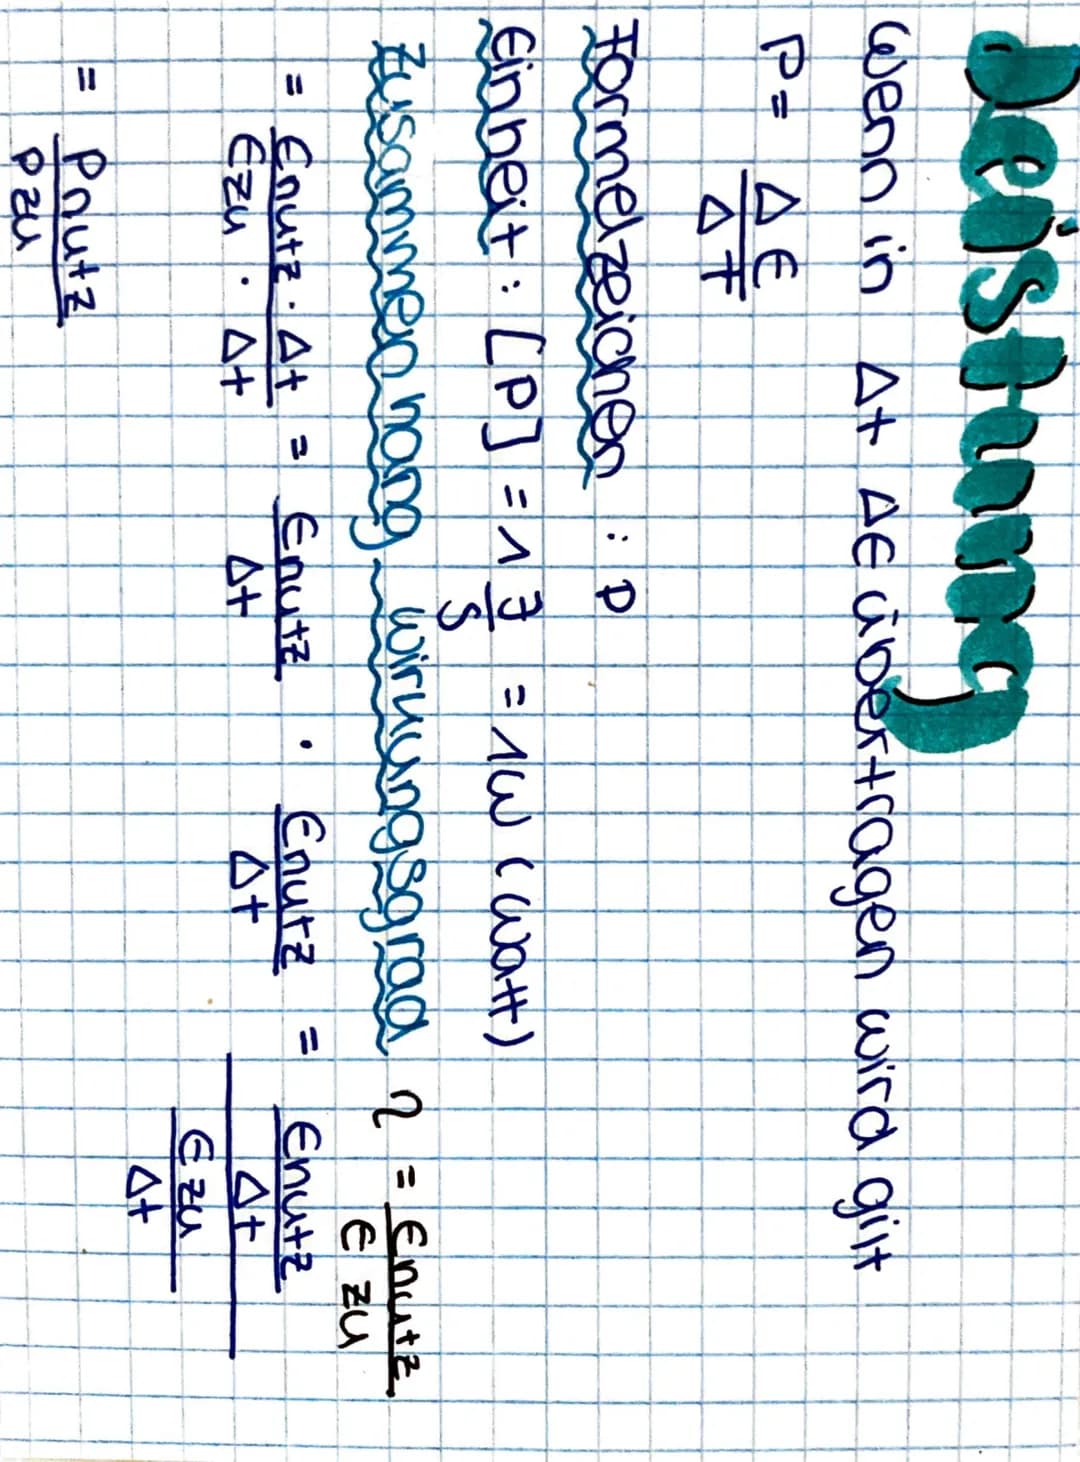 Leistung
Wenn in Δt ΔE übertragen wird gilt
P = ΔE / ΔT
Formelzeichen : P
Einheit : [P] = 1 J/S = 1W (Watt)
Zusammenhang wirkungsgrad η = Enutz / E zu
= Enutz · Δt / Ezu · Δt = Enutz / Δt · Enutz / Δt = Enutz / Δt / E zu / Δt
= Pnutz / P zu